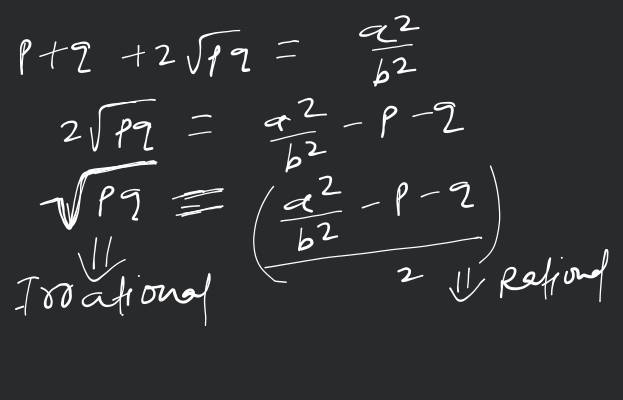 p+q +2√pq = a²/b²
2√pq = a²/b² - p - q
√pq = (a²/b² - p - q)/2
⇓ ⇓
Irrational Rational